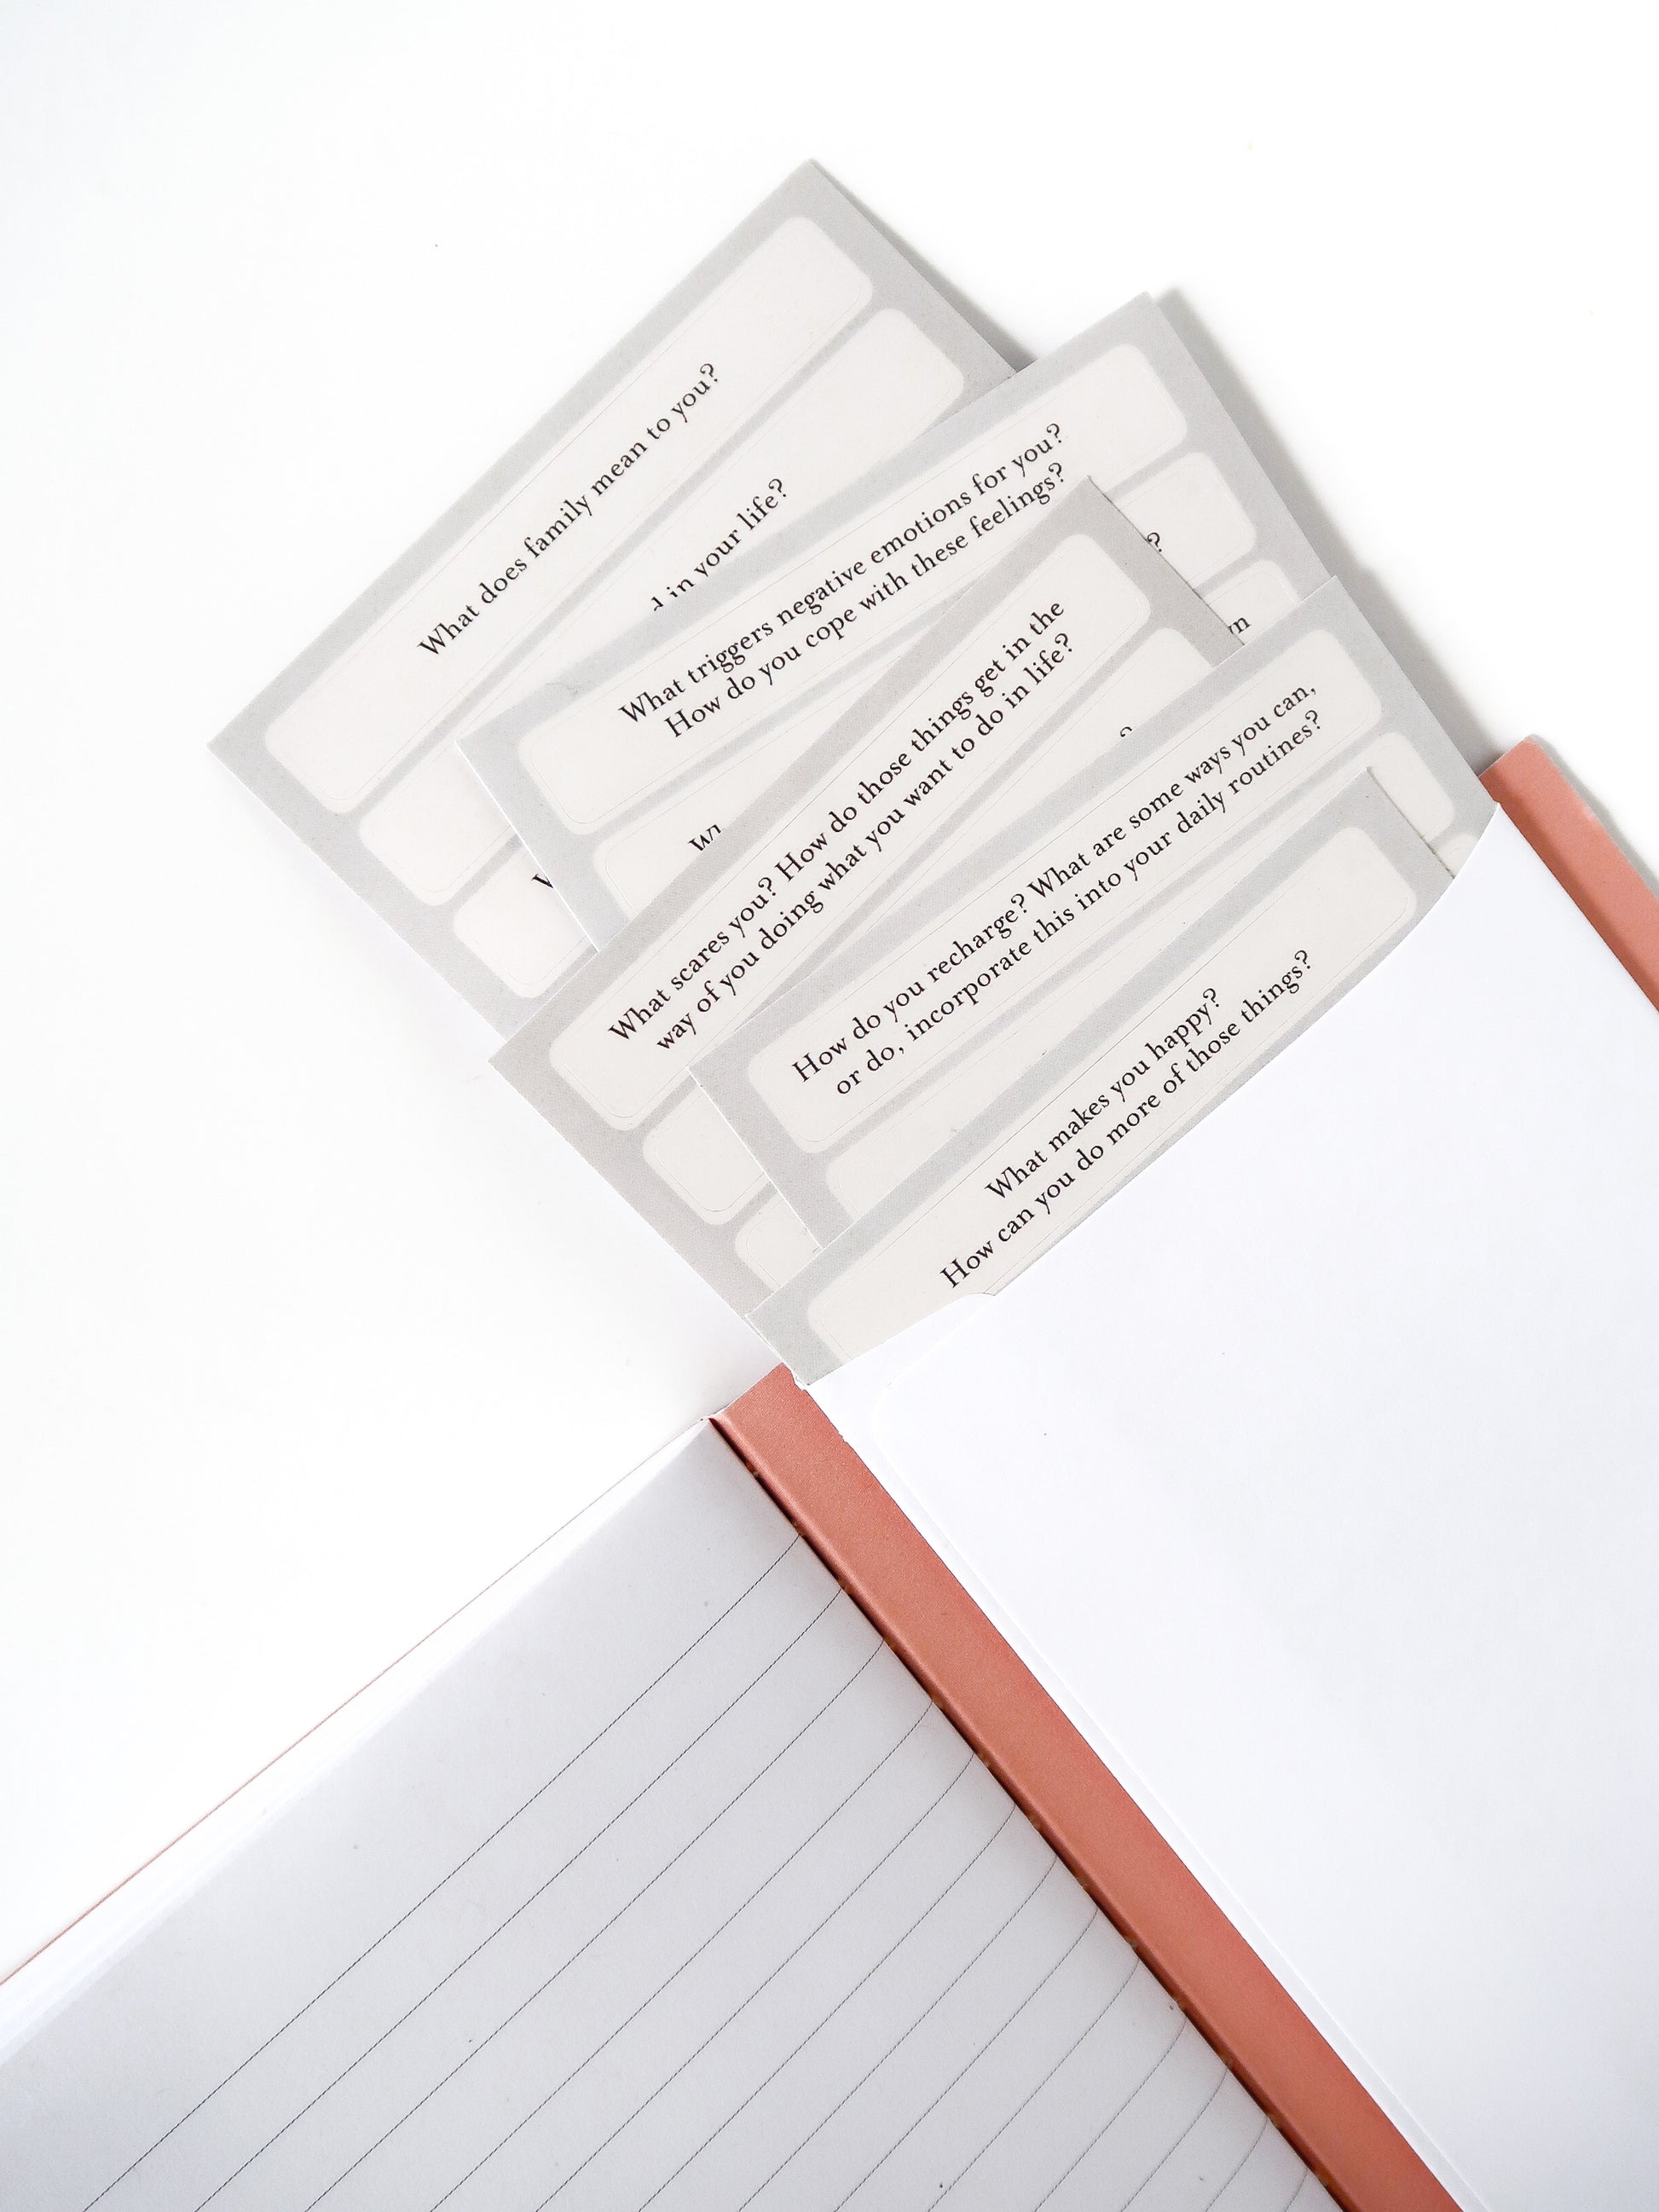 What does family mean to you?
in your life?
What triggers negative emotions for you?
How do you cope with these feelings?
What scares you? How do those things get in the
way of you doing what you want to do in life?
How do you recharge? What are some ways you can,
or do, incorporate this into your daily routines?
What makes you happy?
How can you do more of those things?